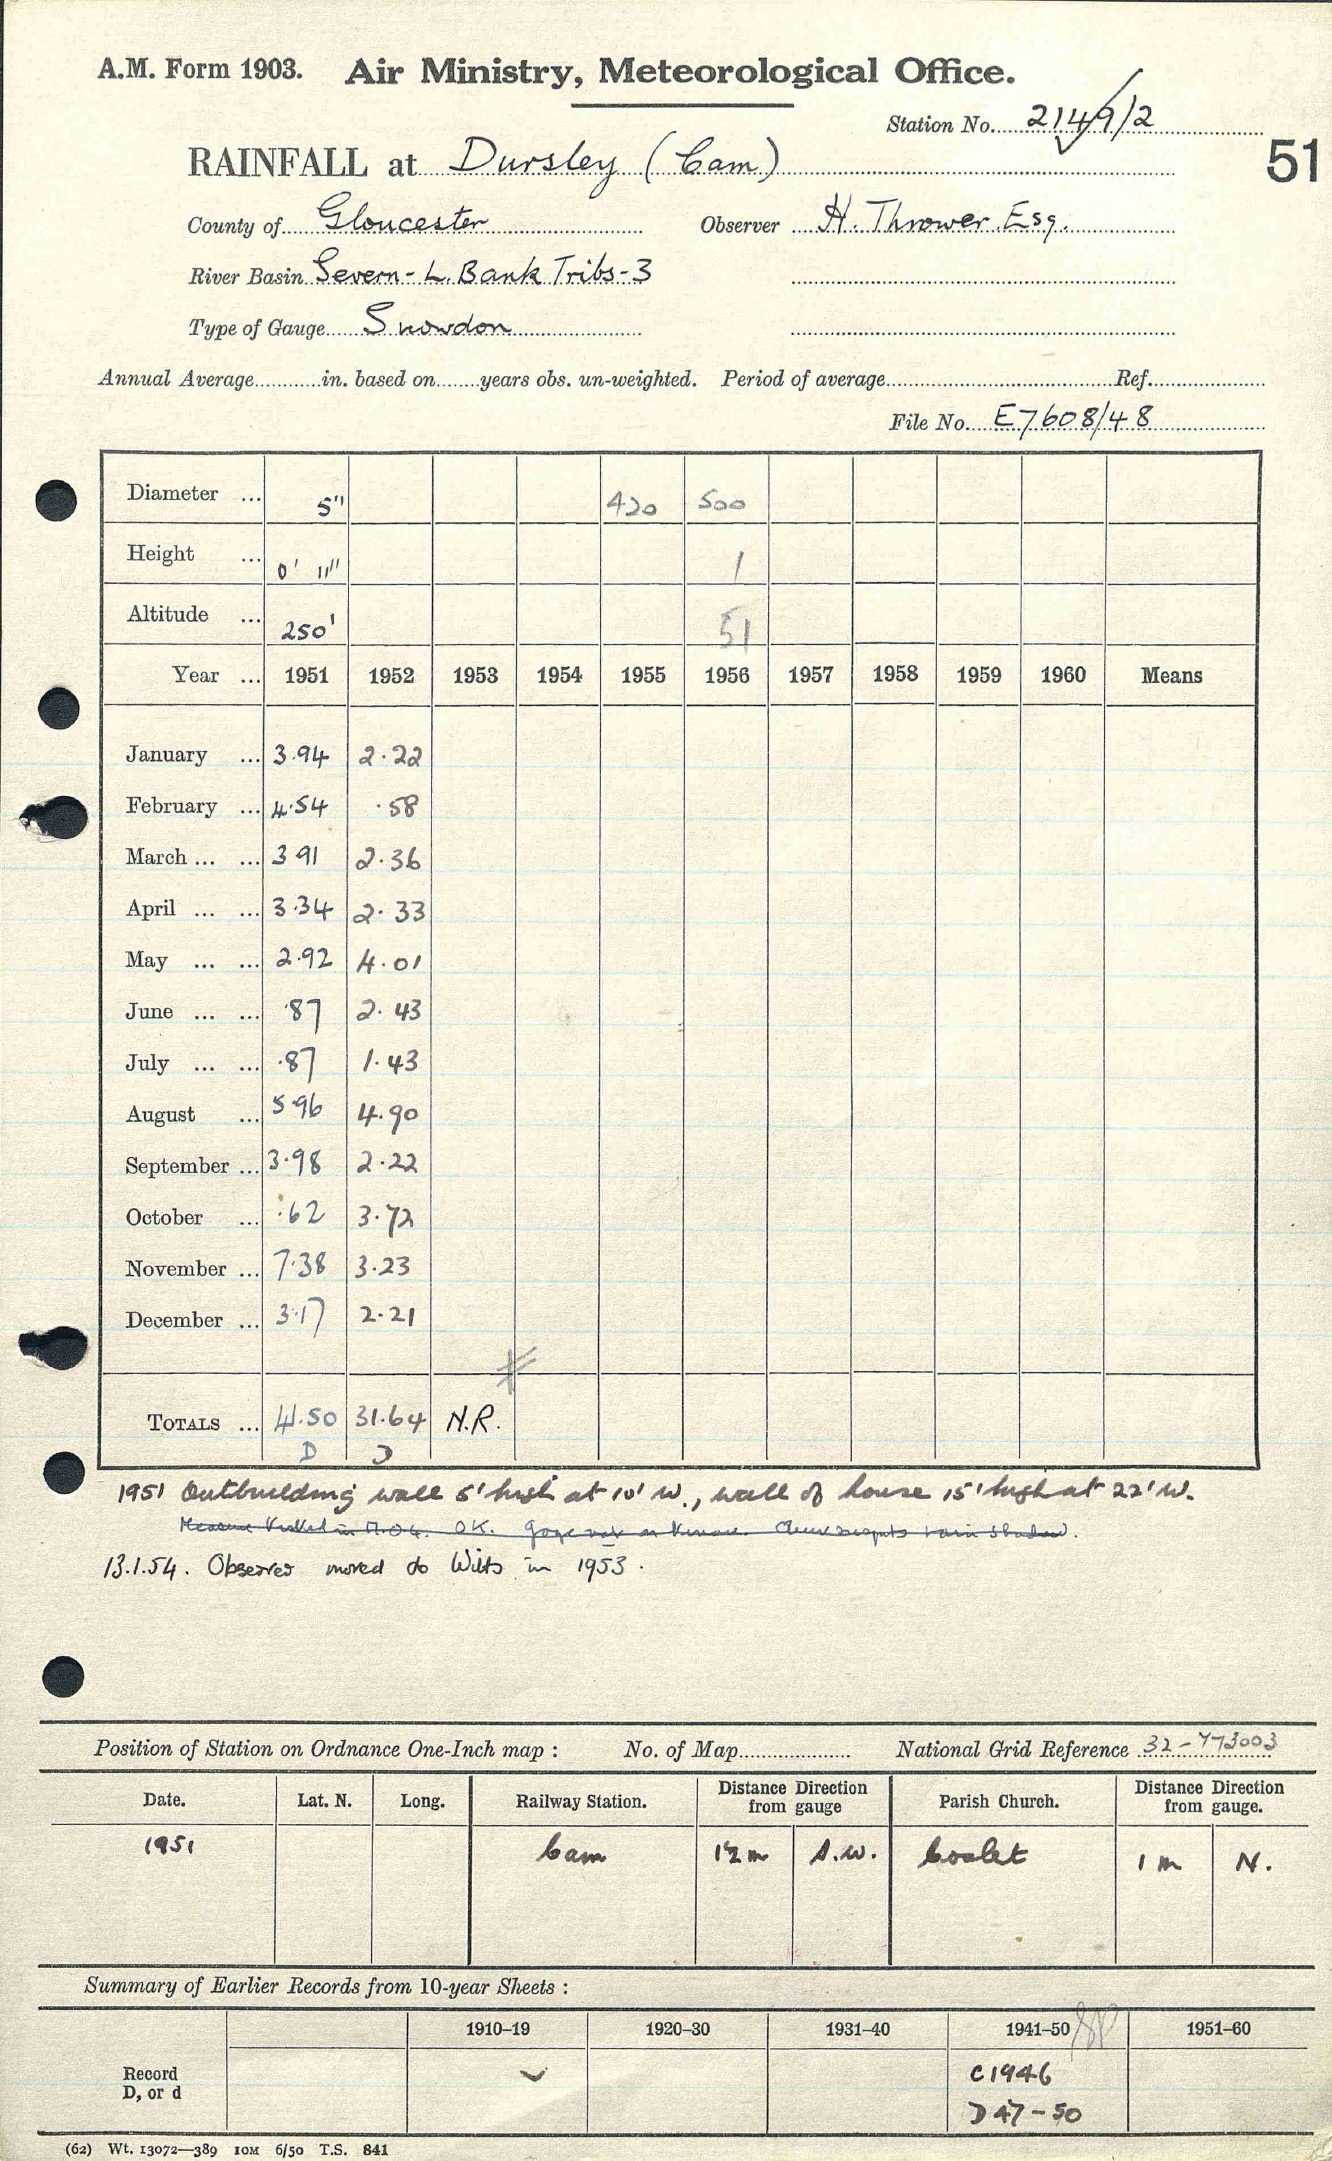 A.M. Form 1903. Air Ministry, Meteorological Office.
Station No. 2149/2
RAINFALL at Dursley (Cam)
51
County of Gloucester Observer H. Thrower Esq.
River Basin Severn - L. Bank Tribs - 3
Type of Gauge Snowdon
Annual Average in. based on years obs. un-weighted. Period of average Ref.
File No. E7608/48
Diameter ... 5" 420 500
Height ... 0' 11" 1
Altitude ... 250' 51
Year ... 1951 1952 1953 1954 1955 1956 1957 1958 1959 1960 Means
January ... 3.94 2.22
February ... 4.54 .58
March ... ... 3 91 2.36
April ... ... 3.34 2.33
May ... ... 2.92 4.01
June ... ... .87 2.43
July ... ... .87 1.43
August ... 5 96 4.90
September ... 3.98 2.22
October ... .62 3.72
November ... 7.38 3.23
December ... 3.17 2.21
TOTALS ... 41.50 31.64 N.R.
D D
1951 Outbuilding wall 6' high at 10' W., wall of house 15' high at 22' W.
13.1.54. Observer moved to Wilts in 1953.
Position of Station on Ordnance One-Inch map : No. of Map National Grid Reference 32-773003
Date. Lat. N. Long. Railway Station. Distance Direction from gauge Parish Church. Distance Direction from gauge.
1951 Cam 1½ m S.W. Coaley 1 m N.
Summary of Earlier Records from 10-year Sheets :
1910–19 1920–30 1931–40 1941–50 1951–60
Record D, or d C1946
D 47-50
(62) Wt. 13072—389 10M 6/50 T.S. 841